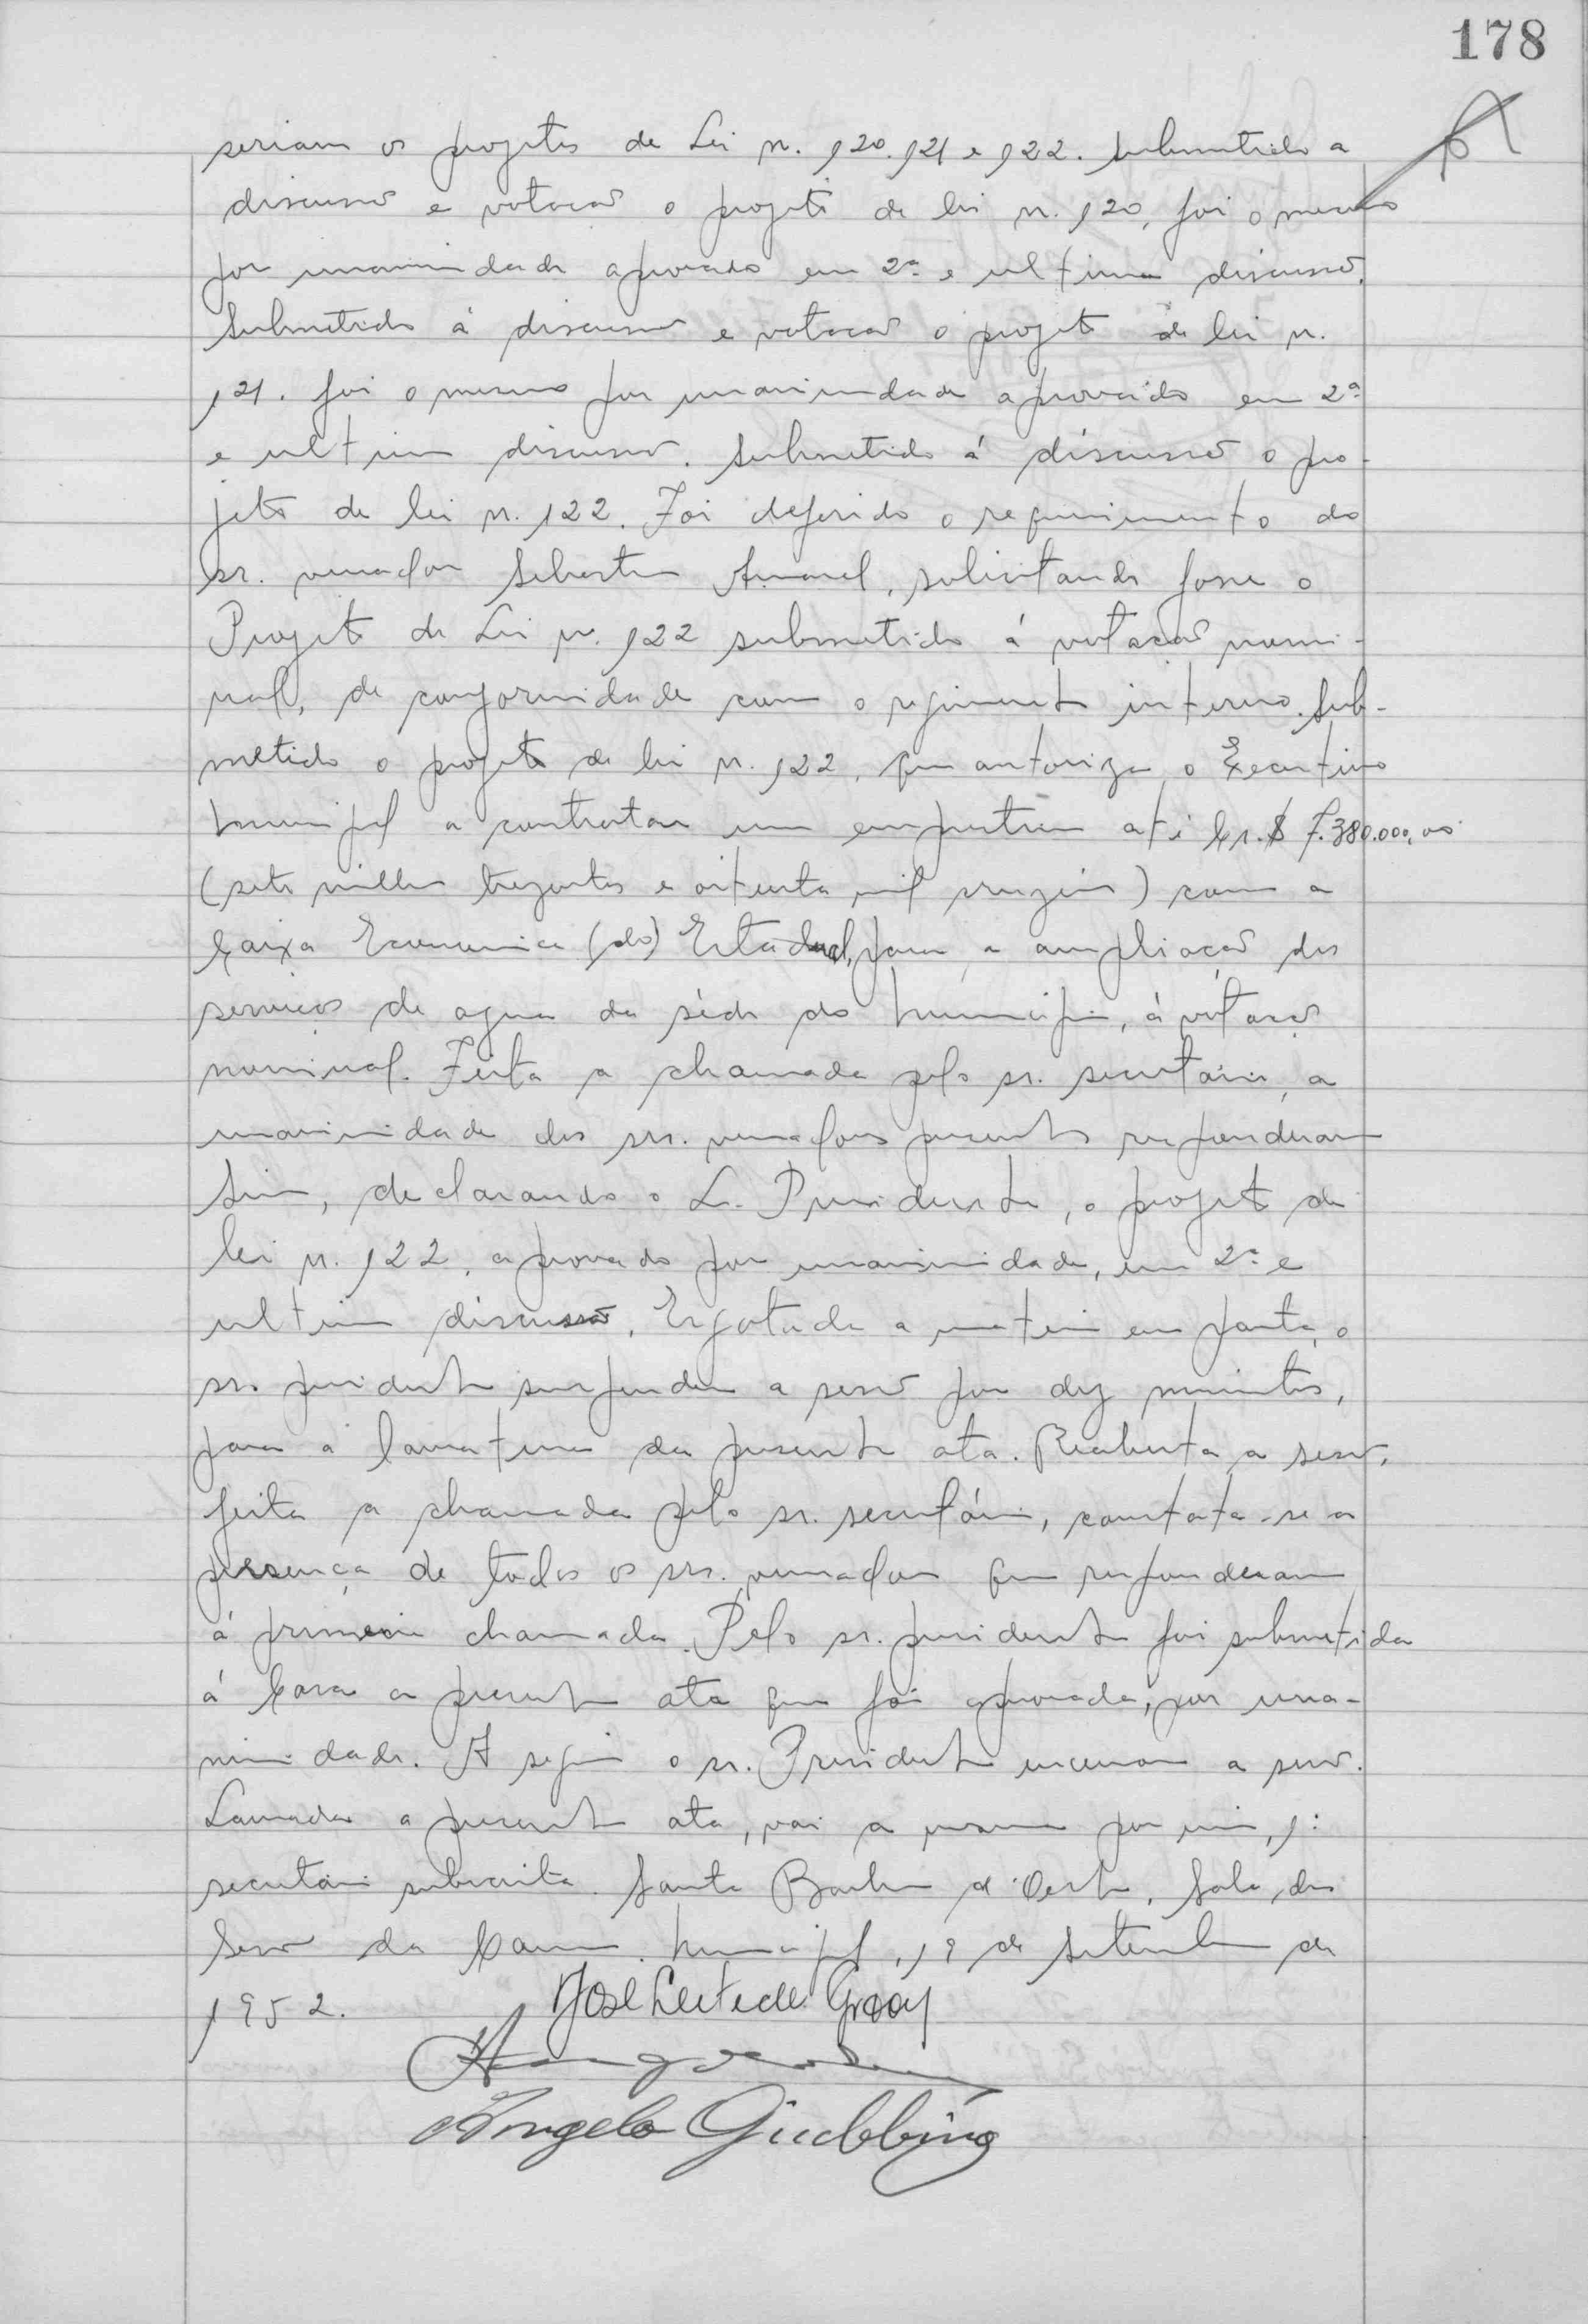 178
seriam os projetos de Lei n. 120. 121 e 122. Submetido a
discussão e votação o projeto de lei n. 120, foi o mesmo
por unanimidade aprovado em 2ª e ultima discussão.
Submetido á discussão e votação o projeto de lei n.
121. foi o mesmo por unanimidade aprovado em 2ª
e ultima discussão. Submetido á discussão o pro-
jeto de lei n. 122. Foi deferido o requerimento do
sr. vereador Sebastião Amaral, solicitando fosse o
Projeto de Lei n. 122 submetido á votação nomi-
nal, de conformidade com o regimento interno. Sub-
metido o projeto de lei n. 122, que autoriza o Executivo
Municipal a contratar um emprestimo até Cr.$ 7.380.000,00
(sete milhões trezentos e oitenta mil cruzeiros) com a
Caixa Economica (do) Estadual, para a ampliação dos
serviços de agua da séde do Municipio, á votação
nominal. Feita a chamada pelo sr. secretario, a
unanimidade dos srs. vereadores presentes responderam
Sim, declarando o Sr. Presidente, o projeto de
lei n. 122, aprovado por unanimidade, em 2ª e
ultima discussão. Esgotada a materia em pauta, o
sr. presidente suspendeu a sessão por dez minutos,
para a lavratura da presente ata. Reaberta a sessão,
feita a chamada pelo sr. secretário, constata-se a
presença de todos os srs. vereadores que responderam
á primeira chamada. Pelo sr. presidente foi submetida
á Casa a presente ata que foi aprovada, por una-
nimidade. A seguir o sr. Presidente encerrou a sessão.
Lavrada a presente ata, vai a mesma por mim, 1º
secretário subscrita. Santa Barbara d'Oeste, Sala das
Sessões da Camara Municipal, 19 de Setembro de
1952. José Leite de Godoy
Angelo Giubbina